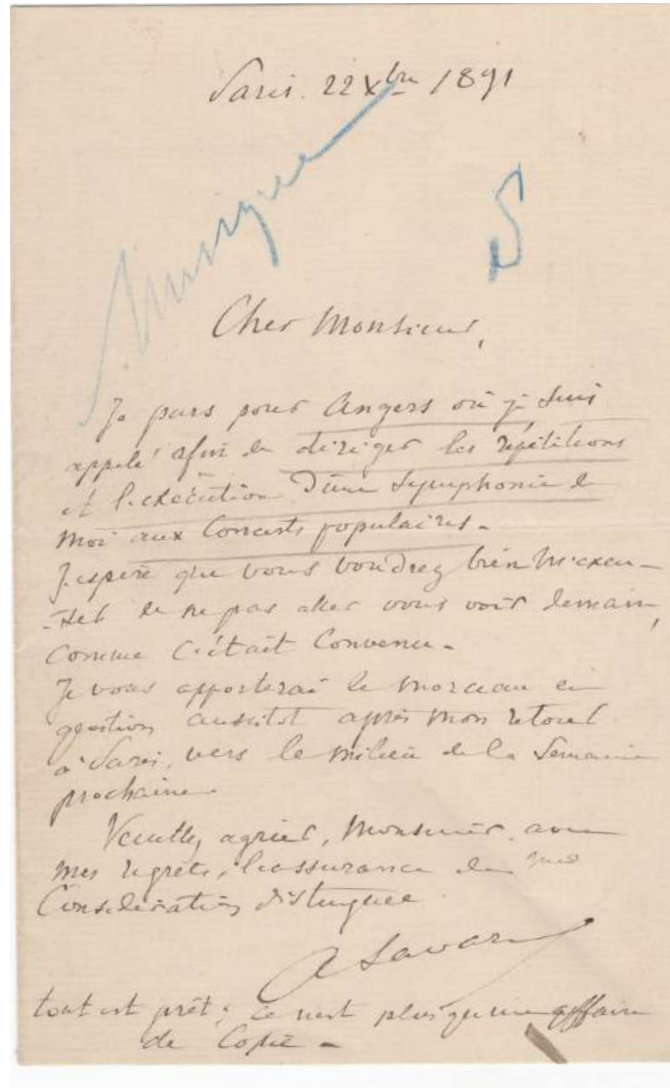 Paris. 22 Xbre 1891
Musique
S
Cher Monsieur,
Je pars pour Angers où je suis
appelé afin de diriger les répétitions
et l'exécution d'une Symphonie de
moi aux Concerts populaires.
J'espère que vous voudrez bien m'excu-
-ser de ne pas aller vous voir demain,
comme c'était convenu.
Je vous apporterai le morceau en
question aussitôt après mon retour
à Paris, vers le milieu de la semaine
prochaine.
Veuillez agréer, Monsieur, avec
mes regrets, l'assurance de ma
Considération distinguée.
tout est prêt; ce n'est plus qu'une affaire
de Copie -